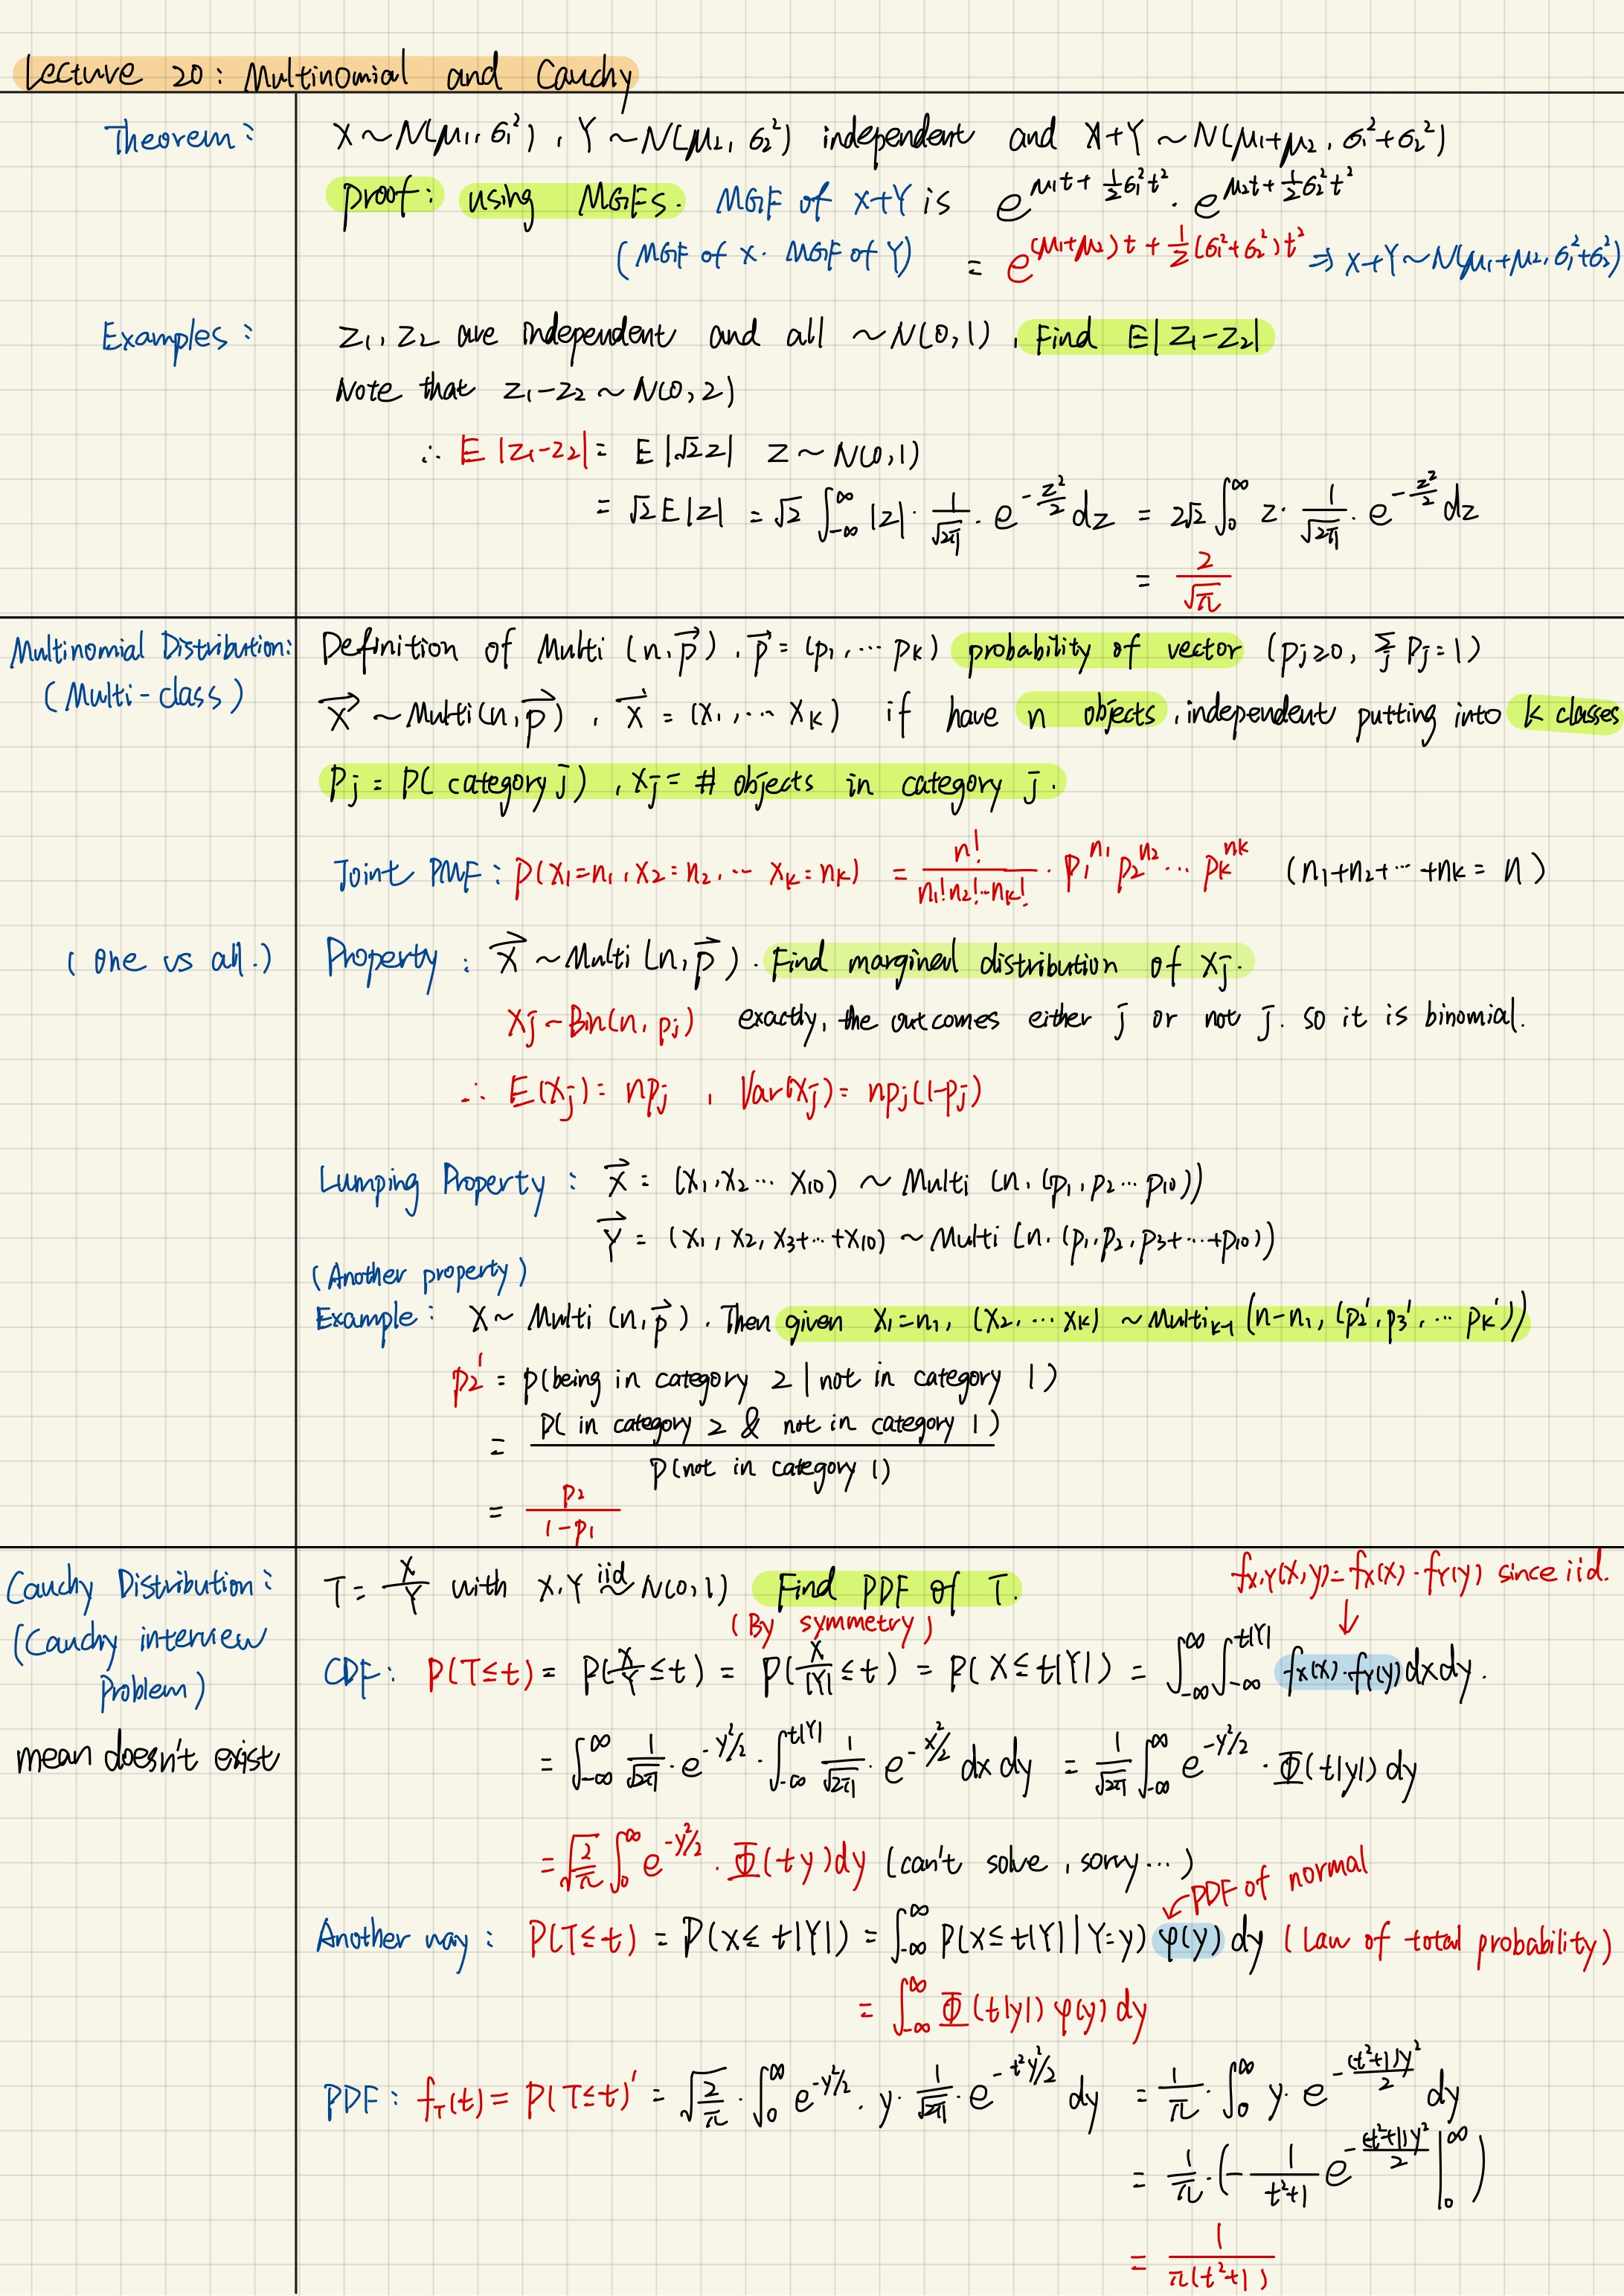 Lecture 20: Multinomial and Cauchy
Theorem: X ~ N(μ₁, σ₁²), Y ~ N(μ₂, σ₂²) independent and X+Y ~ N(μ₁+μ₂, σ₁²+σ₂²)
proof: using MGFs. MGF of X+Y is e^{μ₁t + ½σ₁²t²} · e^{μ₂t + ½σ₂²t²}
(MGF of X · MGF of Y) = e^{(μ₁+μ₂)t + ½(σ₁²+σ₂²)t²} ⇒ X+Y ~ N(μ₁+μ₂, σ₁²+σ₂²)
Examples: Z₁, Z₂ are independent and all ~ N(0,1), Find E|Z₁-Z₂|
Note that Z₁-Z₂ ~ N(0,2)
∴ E|Z₁-Z₂| = E|√2 Z| Z ~ N(0,1)
= √2 E|Z| = √2 ∫_{-∞}^{∞} |z| · 1/√(2π) · e^{-z²/2} dz = 2√2 ∫_0^∞ z · 1/√(2π) · e^{-z²/2} dz
= 2/√π
Multinomial Distribution: Definition of Multi (n, p⃗), p⃗ = (p₁, ··· pk) probability of vector (pj≥0, Σ_j Pj=1)
(Multi-class) X⃗ ~ Multi(n, p⃗), X⃗ = (X₁, ··· Xk) if have n objects, independent putting into k classes
Pj = P( category j), Xj = # objects in category j.
Joint PMF: P(X₁=n₁, X₂=n₂, ··· Xk=nk) = n!/(n₁!n₂!···nk!) · p₁^{n₁} p₂^{n₂} ··· pk^{nk} (n₁+n₂+···+nk = n)
(one vs all.) Property: X⃗ ~ Multi (n, p⃗). Find marginal distribution of Xj.
Xj ~ Bin(n, pj) exactly, the outcomes either j or not j. so it is binomial.
∴ E(Xj) = npj, Var(Xj) = npj(1-pj)
Lumping Property: X⃗ = (X₁, X₂ ··· X₁₀) ~ Multi (n, (p₁, p₂ ··· p₁₀))
Y⃗ = (X₁, X₂, X₃+···+X₁₀) ~ Multi (n, (p₁, p₂, p₃+···+p₁₀))
(Another property)
Example: X ~ Multi (n, p⃗). Then given X₁=n₁, (X₂, ··· Xk) ~ Multi_{k-1} (n-n₁, (p₂', p₃', ··· pk'))
p₂' = p(being in category 2 | not in category 1)
= P( in category 2 & not in category 1) / P(not in category 1)
= p₂/(1-p₁)
f_{X,Y}(x,y) = f_X(x)·f_Y(y) since iid.
Cauchy Distribution: T = X/Y with X, Y iid ~ N(0,1) Find PDF of T.
(By symmetry)
(Cauchy interview Problem) CDF: P(T≤t) = P(X/Y ≤ t) = P(X/|Y| ≤ t) = P(X ≤ t|Y|) = ∫_{-∞}^{∞} ∫_{-∞}^{t|Y|} f_X(x)·f_Y(y) dx dy.
mean doesn't exist = ∫_{-∞}^{∞} 1/√(2π) · e^{-y²/2} · ∫_{-∞}^{t|Y|} 1/√(2π) · e^{-x²/2} dx dy = 1/√(2π) ∫_{-∞}^{∞} e^{-y²/2} · Φ(t|y|) dy
= √(2/π) ∫_0^∞ e^{-y²/2} · Φ(ty) dy (can't solve, sorry···)
PDF of normal
Another way: P(T≤t) = P(X≤ t|Y|) = ∫_{-∞}^{∞} P(X≤t|Y| | Y=y) φ(y) dy (Law of total probability)
= ∫_{-∞}^{∞} Φ(t|y|) φ(y) dy
PDF: f_T(t) = P(T≤t)' = √(2/π) · ∫_0^∞ e^{-y²/2} · y · 1/√(2π) · e^{-t²y²/2} dy = 1/π · ∫_0^∞ y · e^{-(t²+1)y²/2} dy
= 1/π · (- 1/(t²+1) e^{-(t²+1)y²/2} |_0^∞)
= 1/(π(t²+1))